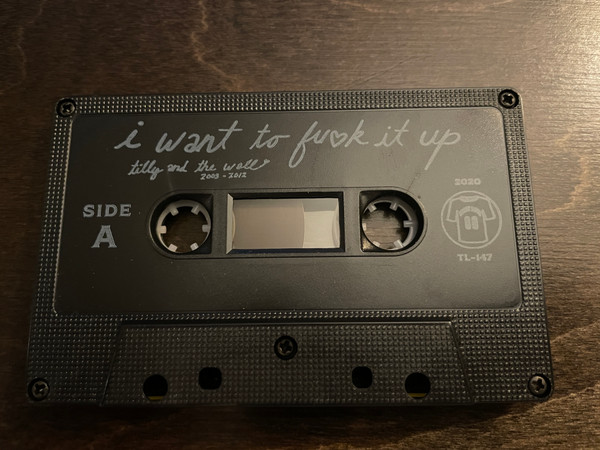 i want to fu♥k it up
tilly and the wall
2003 - 2012
SIDE
A
2020
TL-147